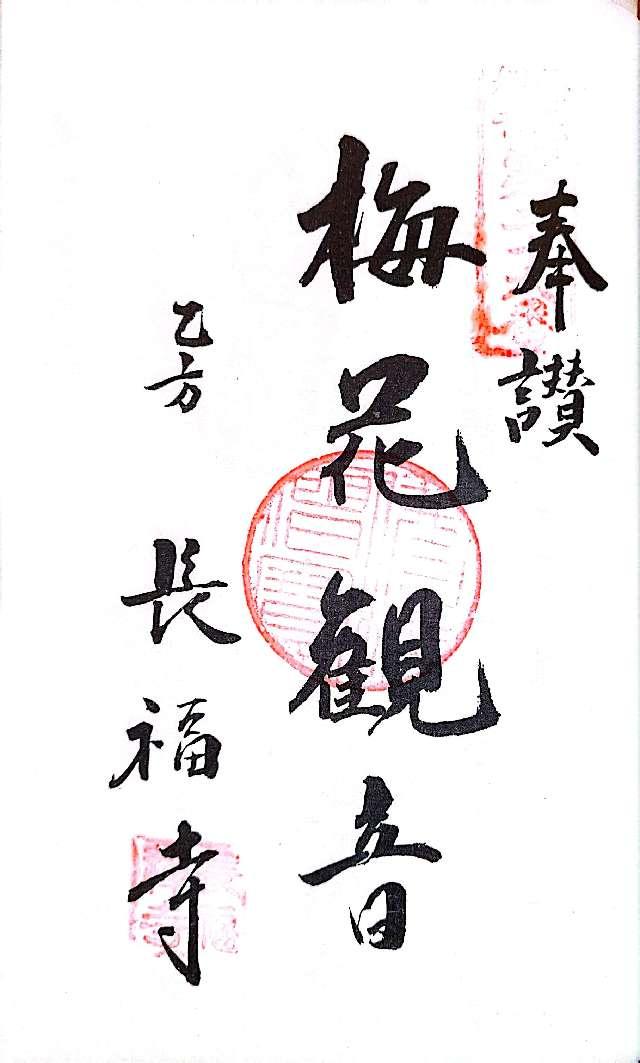 奉讃
梅花観音
乙方 長福寺